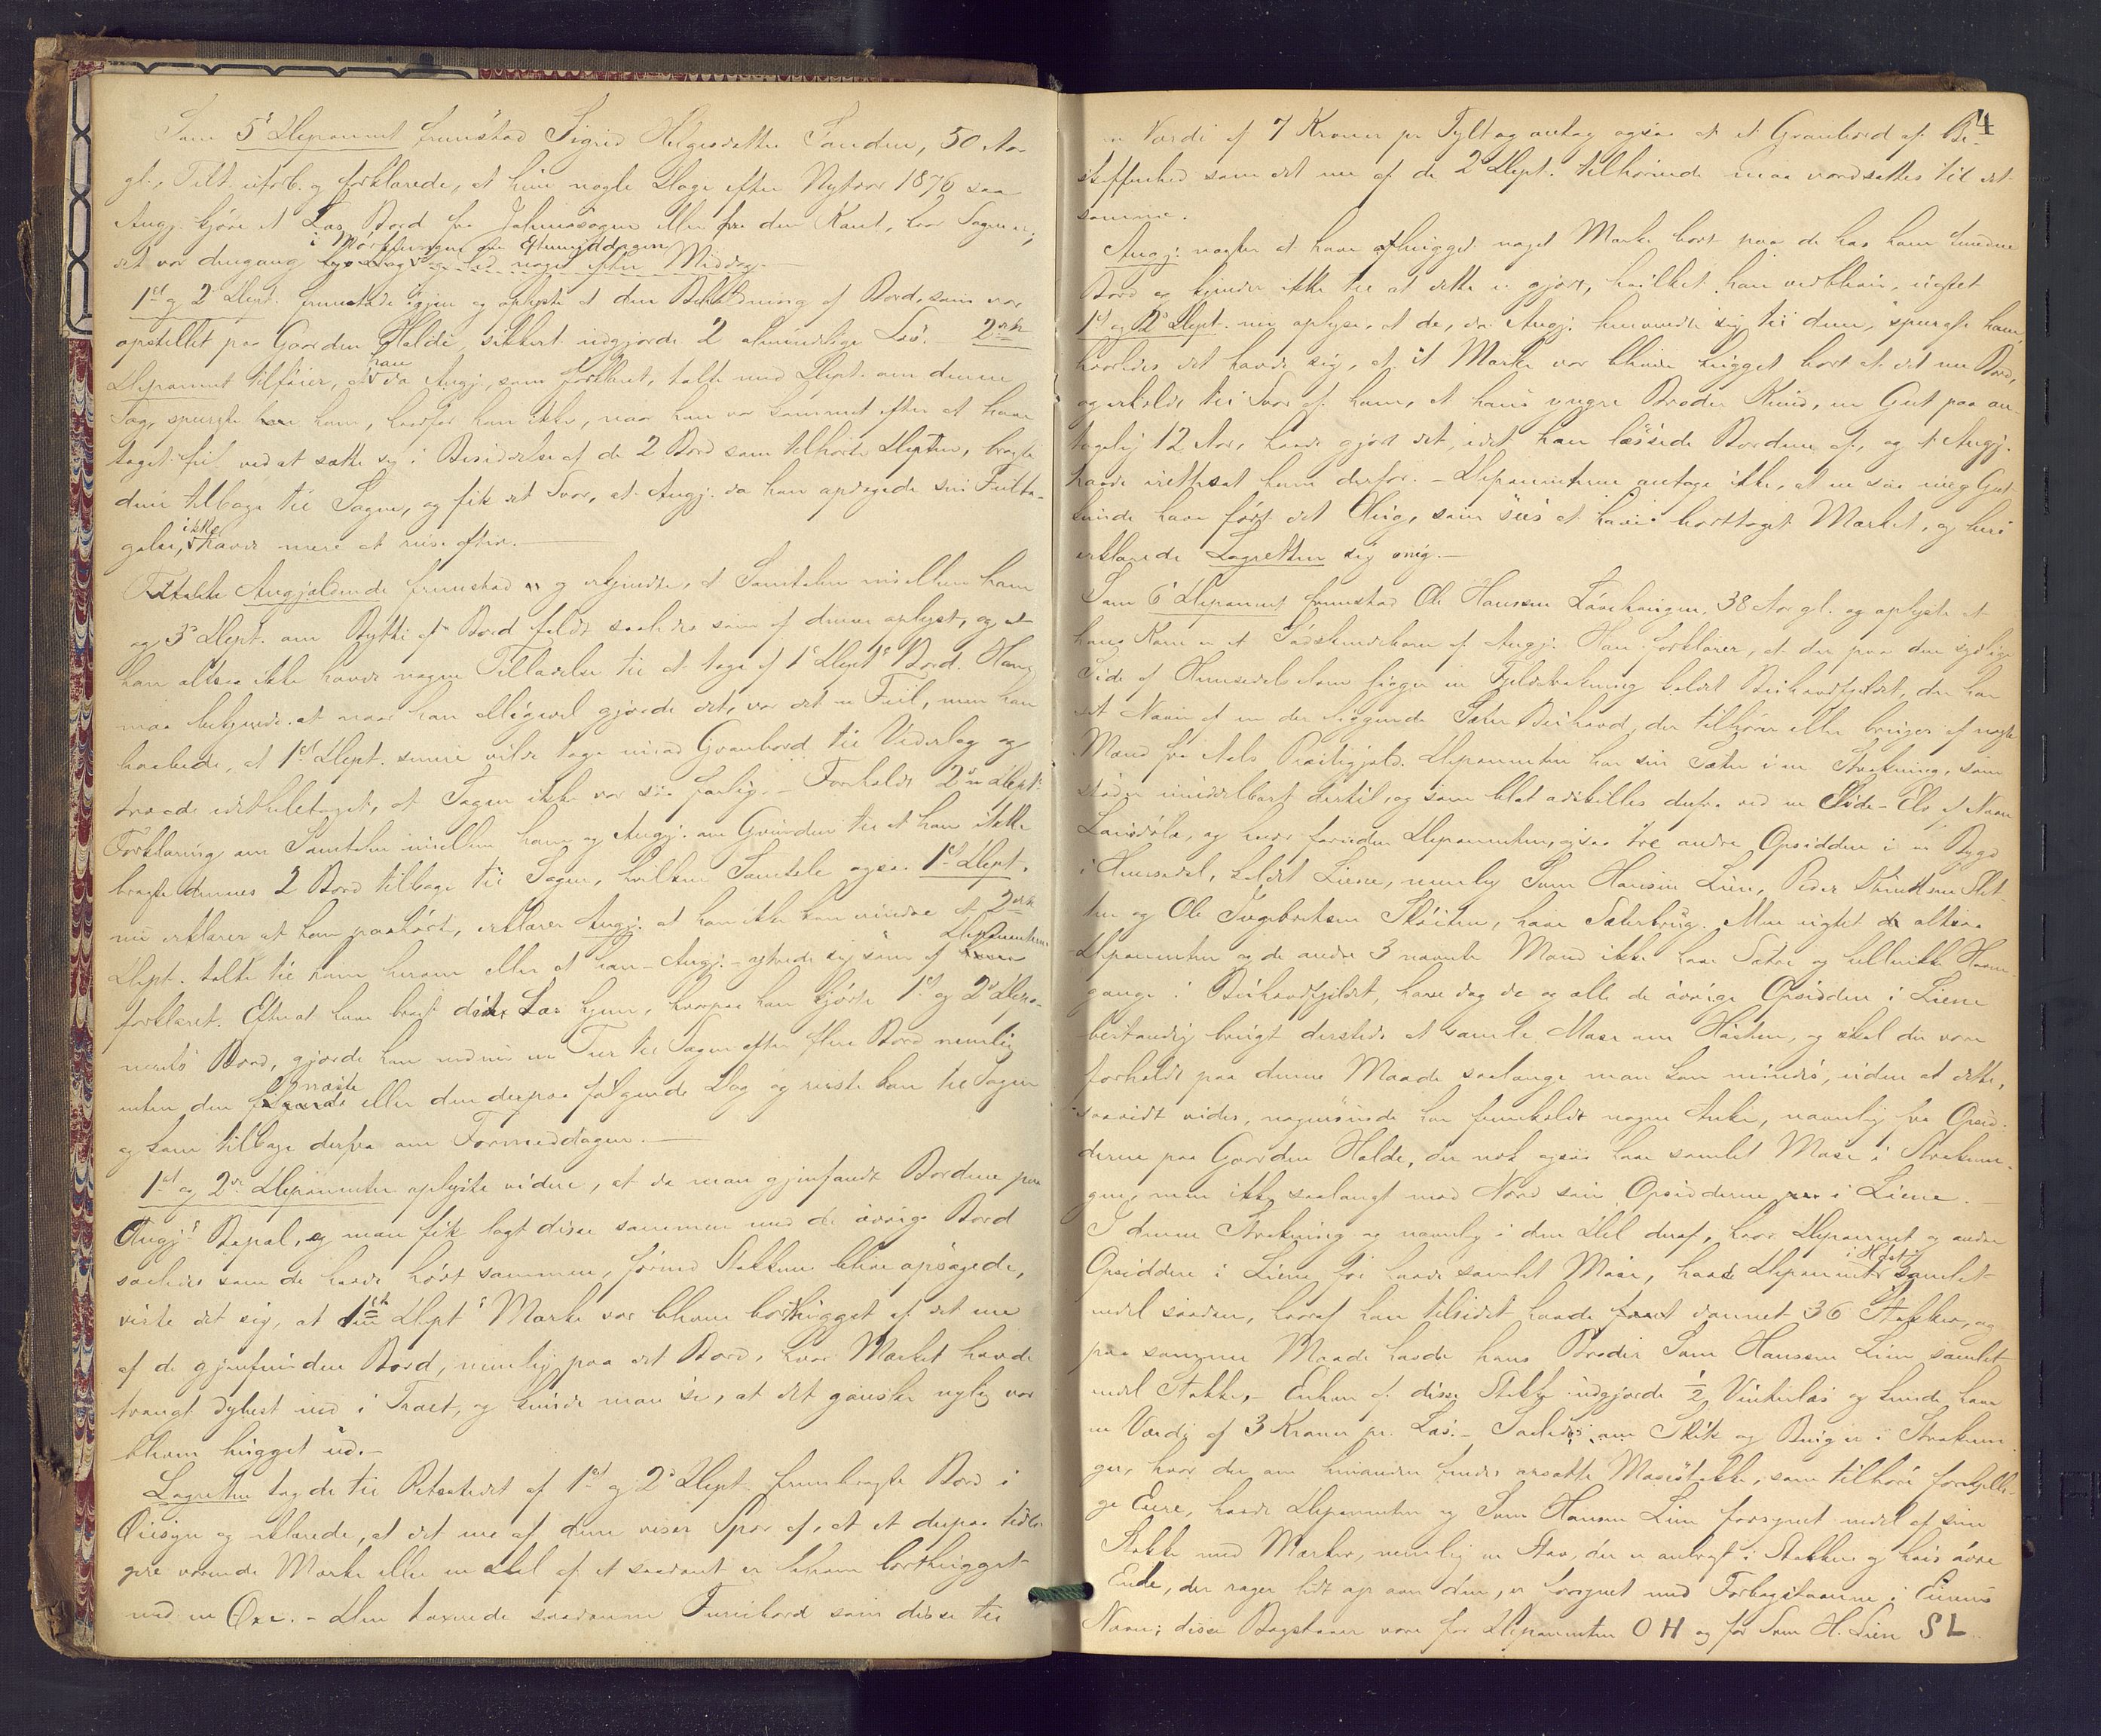 Som 5' Deponent fremstod Sigrid Helgesdatter Sanden, 50 Aar
gl., Tilt. uforb. og forklarede, at hun nogle Dage efter Nytaar 1876 saa
Angj. kjøre et Læs Bord fra Johnssagen eller fra den Kant, hvor Sagen er;
i Mørkningen om Eftermiddagen
det var dengang lys Dag og led noget efter Middag.
1st og 2' Dept. fremstode igjen og oplyste at den Beholdning af Bord, som var
opstillet paa Gaarden Halde, sikkert udgjorde 2 almindelige Læs. 2den
Deponent tilføier, at han da Angj., som forklaret, talte med Dept. om denne
Sag, spurgte ham, hvorfor han ikke, naar han var kommet efter at have
taget feil ved at sætte sig i Besiddelse af de 2 Bord som tilhørte Depten, bragte
dem tilbage til Sagen, og fik det Svar, at Angj. da han opdagede sin Feilta-
gelse, ikke havde mere at reise efter.
Tiltalte Angjældende fremstod og erkjendte, at Samtalen mellem ham
og 3' Dept. om Bytte af Bord faldt saaledes som af denne oplyst, og at
han altsaa ikke havde nogen Tilladelse til at tage af 1' Dept's Bord. Han
maa bekjende at naar han alligevel gjorde det, var det en Feil, men han
haabede, at 1st Dept. senere vilde tage imod Granbord til Vederlag og
troede idetheletaget, at Sagen ikke var saa farlig. Foreholdt 2den Dept's
Forklaring om Samtalen mellem ham og Angj. om Grunden til at han ikke
bragte dennes 2 Bord tilbage til Sagen, hvilken Samtale ogsaa 1st Dept.
nu erklærer at have paahørt, erklærer Angj. at han ikke kan mindes at 2den
Dept. talte til ham herom eller at han - Angj. - ytrede sig som af Deponenterne
forklaret. Efterat have bragt dette Læs hjem, hvorpaa han kjørte 1st og 2' Depo-
nents Bord, gjorde han endnu en Tur til Sagen efter flere Bord nemlig
enten den næste eller den derpaa følgende Dag og reiste han til Sagen
og kom tilbage derfra om Formiddagen.
1st og 2de Deponenter oplyste videre, at da man gjenfandt Bordene paa
Angj's Bopæl, og man fik lagt disse sammen med de øvrige Bord
saaledes som de havde hørt sammen, førend Stokkene bleve opsagede,
viste det sig, at 1st Dept's Mærke var bleven borthugget af det ene
af de gjenfundne Bord, nemlig paa det Bord, hvor Mærket havde
trængt dybest ind i Træet, og kunde man se, at det ganske nylig var
bleven hugget ud.
Lagretten tog de til Retsstedet af 1st og 2' Dept. frembragte Bord i
Øiesyn og erklærede, at det ene af dem viser Spor af, at et derpaa tidli-
gere værende Mærke eller en Del af et saadant er bleven borthugget
med en Øxe. - Den taxerede saadanne Furubord som disse til
4
en Værdi af 7 Kroner pr Tylt og antog ogsaa at et Granbord af Be-
skaffenhed som det ene af de 2 Dept. tilhørende maa værdsættes til det
samme.
Angj. nægter at have afhugget noget Mærke bort paa de hos ham fundne
Bord og kjender ikke til at dette er gjort, hvilket han vedbliver, uagtet
1st og 2' Dept. nu oplyse, at de, da Angj. henvendte sig til dem, spurgte ham,
hvorledes det havde sig, at et Mærke var bleven hugget bort af det ene Bord,
og erholdt til Svar af ham, at hans yngre Broder Knud, en Gut paa an-
tagelig 12 Aar, havde gjort det, idet han læssede Bordene af, og at Angj.
havde irettesat ham derfor. - Deponenterne antage ikke, at en saa ung Gut
kunde have ført det Hug, som sees at have borttaget Mærket, og heri
erklærede Lagretten sig enig.
Som 6' Deponent fremstod Ole Hansen Løvehaugen, 38 Aar gl. og oplyste at
hans Kone er et Sødskendebarn af Angj. Han forklarer, at der paa den sydlige
Side af Hemsedalselven ligger en Fjeldstrækning kaldet Beihovdfjeldet, der har
sit Navn af en der liggende Sæter Beihovd, der tilhører eller bruges af nogle
Mænd fra Aals Præstegjeld. Deponenten har sin Sæter i en Strækning, som
støder umiddelbart dertil, og som blot adskilles derfra ved en Side-Elv af Navn
Lauvdøla, og hvor foruden Deponenten, ogsaa tre andre Opsiddere i en Bygd
i Hemsedal, kaldet Liene, nemlig Svem Hansen Lien, Peder Knudsen Slet-
ten og Ole Torgebretsen Skøiten, have Sæterbrug. Men uagtet altsaa
Deponenten og de andre 3 nævnte Mænd ikke have Sætre og hellerikke Havne-
gange i Beihovdfjeldet, have dog de og alle de øvrige Opsiddere i Liene
bestandig brugt dersteds at samle Mose om Høsten, og skal det være
forholdt paa denne Maade saalange man kan mindes, uden at dette,
saavidt vides, nogensinde har fremkaldt nogen Anke, navnlig fra Opsid-
derne paa Gaarden Halde, der nok ogsaa have samlet Mose i Stræknin-
gen, men ikke saalangt mod Nord som Opsidderne i Liene.
I denne Strækning og navnlig i den Del deraf, hvor Deponent og andre
Opsiddere i Liene før havde samlet Mose, havde Deponenten i Høst samlet
endel saadan, hvoraf han tilsidst havde dannet 36 Stakker, og
paa samme Maade havde hans Broder Svem Hansen Lien samlet
endel Stakke. - Enhver af disse Stakke udgjorde ½ Vinterlæs og kunde have
en Værdi af 3 Kroner pr. Læs. - Saaledes som Skik og Brug er i Stræknin-
ger, hvor der om hinanden findes opsatte Mosestakke, som tilhøre forskjelli-
ge Eiere, havde Deponenten og Svem Hansen Lien forsynet endel af sine
Stakke med Mærker, nemlig en Stav, der er anbragt i Stakken og hvis øvre
Ende, der rager lidt op over den, er forsynet med Forbogstaverne i Eierens
Navn; disse Bogstaver vare for Deponenten O H og for Svem H. Lien S L.